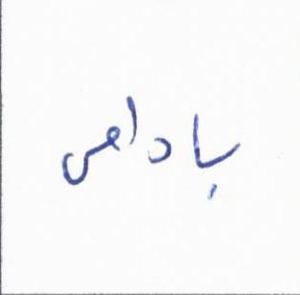 بادامی